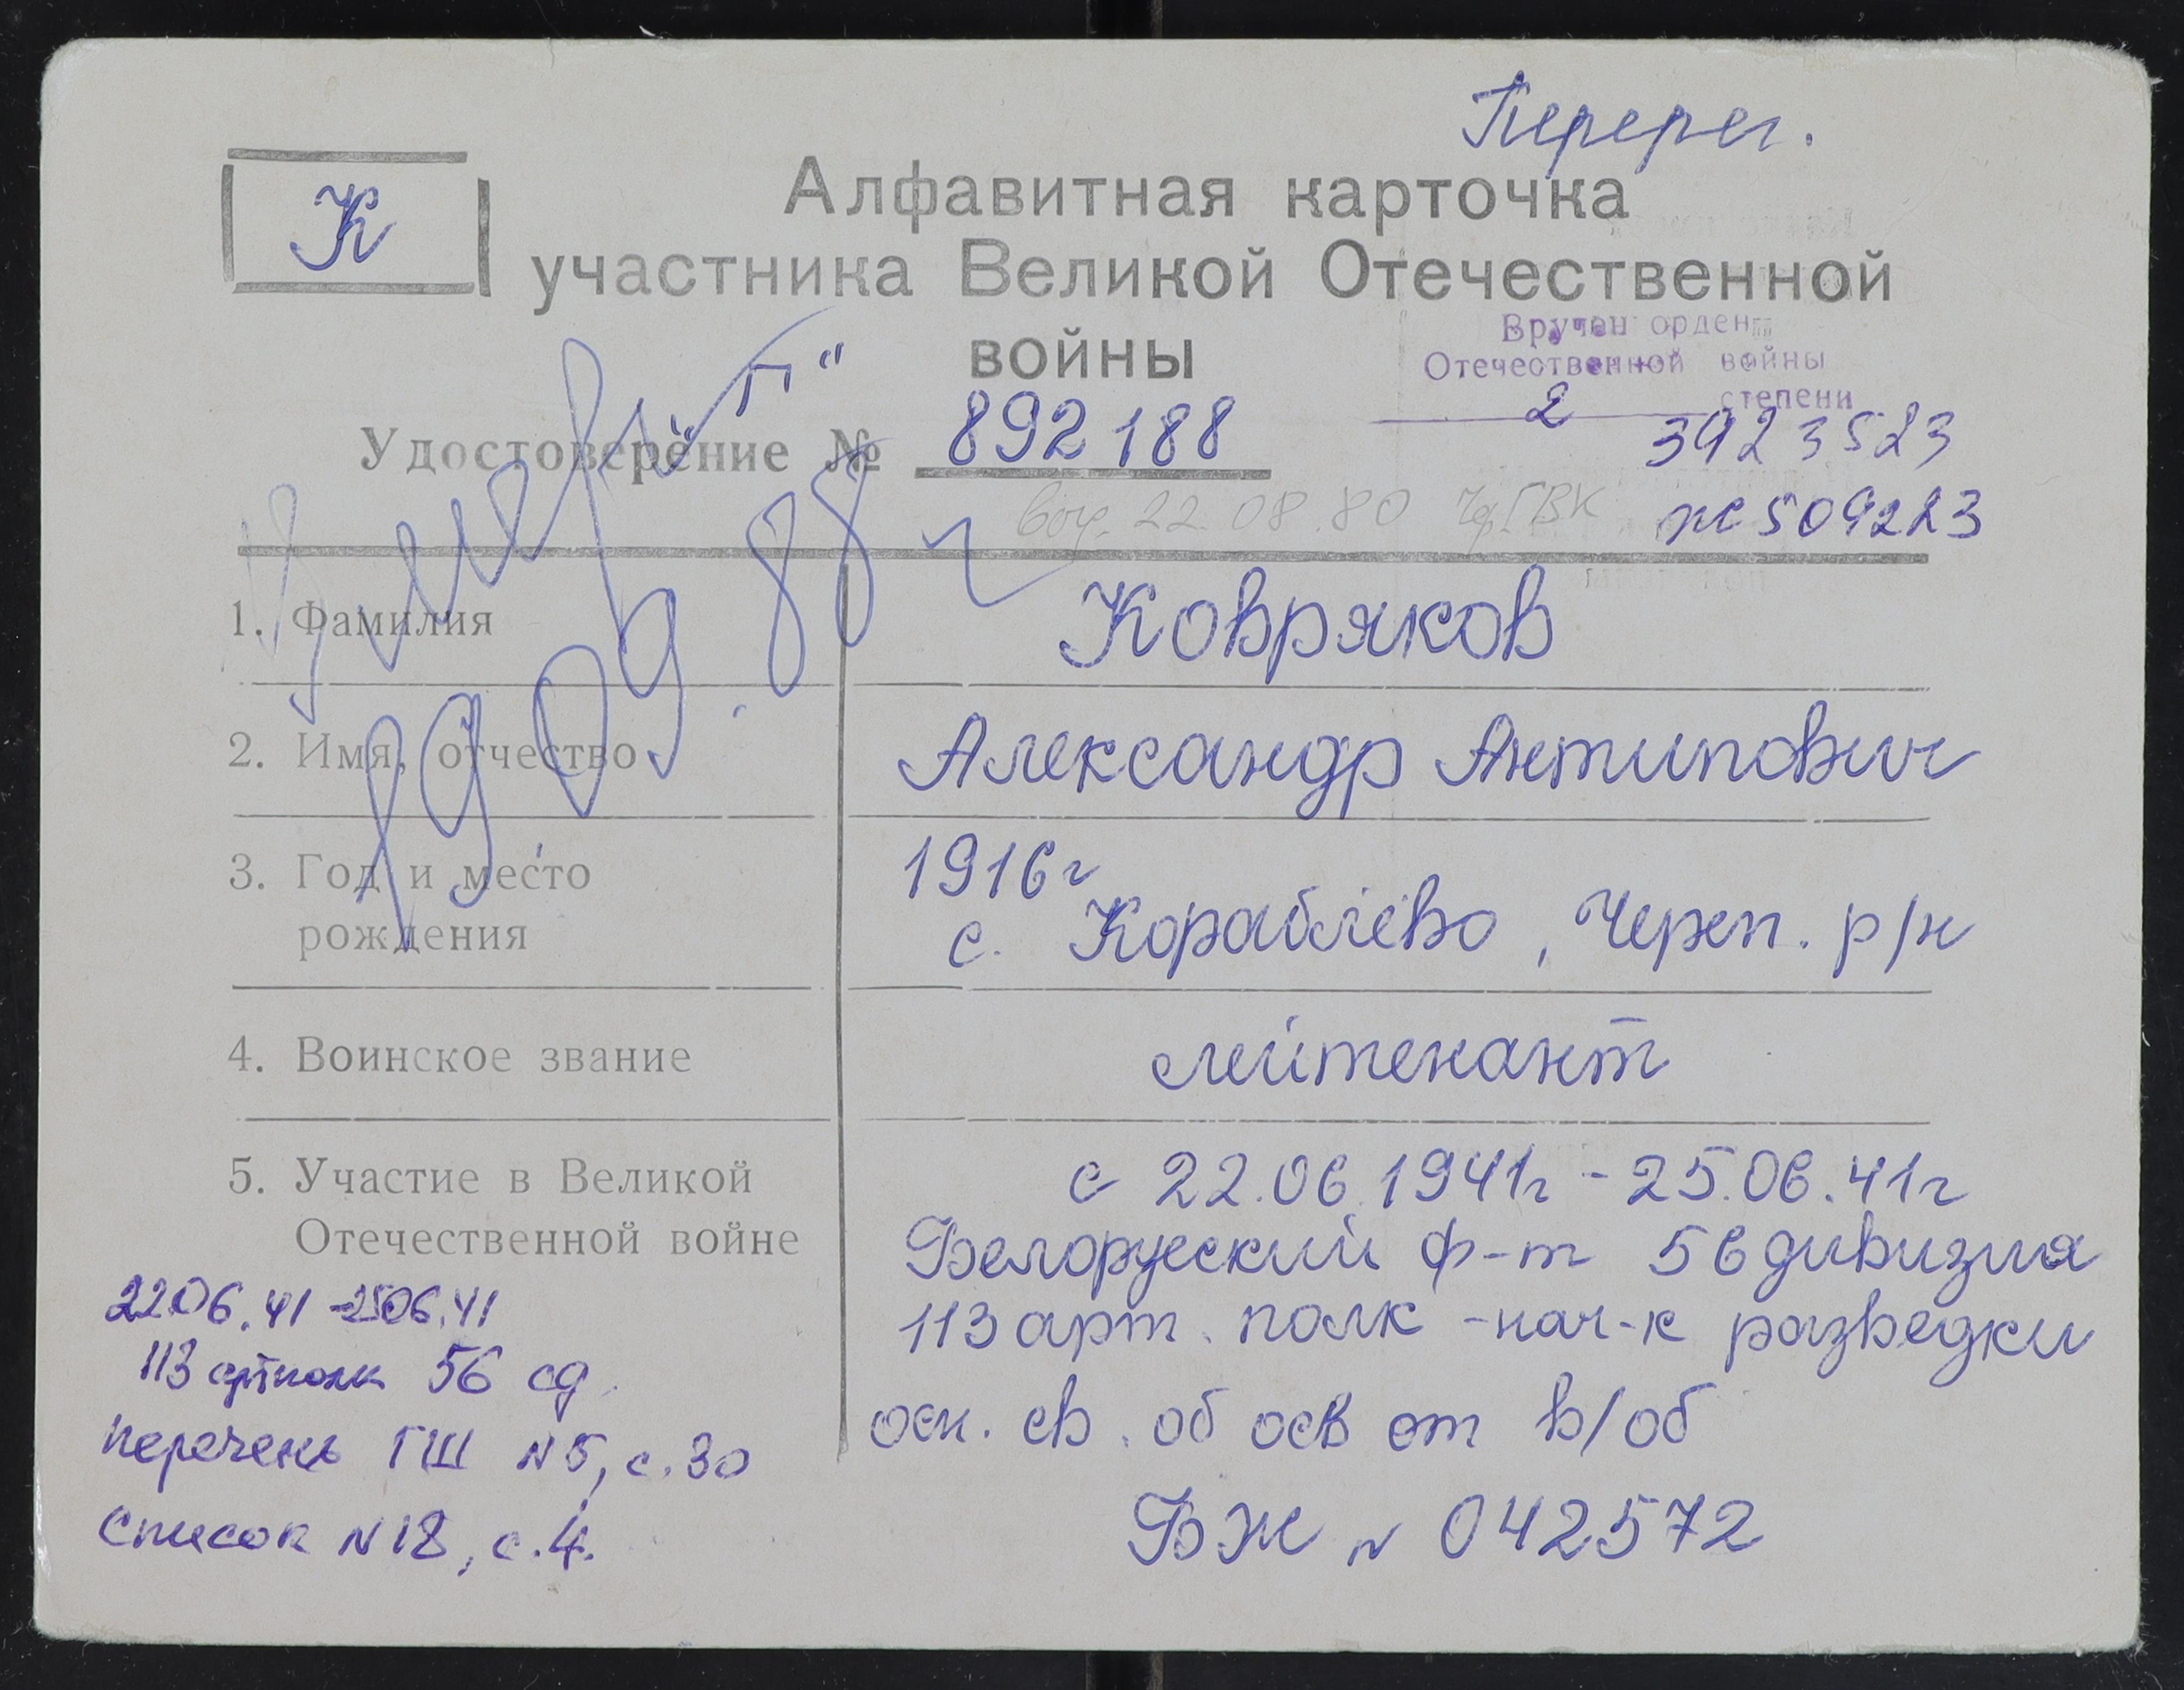 Перерег.
К
Алфавитная карточка
участника Великой Отечественной
войны
Вручен орден
Отечественной войны
2 степени
„П“
Удостоверение № 892188
3923523
22.08.80 ГВК
пс 509223
Умер
19.09.88 г
1. Фамилия Ковряков
2. Имя, отчество Александр Антипович
3. Год и место 1916г
рождения с. Кораблёво, Череп. р/н
4. Воинское звание лейтенант
5. Участие в Великой с 22.06.1941г - 25.06.41г
Отечественной войне Белоруеский ф-т 56 дивизия
113 арт. полк - нач-к разведки
осн. св. об осв от в/об
ВЖ № 042572
22.06.41 - 25.06.41
113 артполк 56 сд.
перечень ГШ № 5, с. 30
список № 18, с. 4.